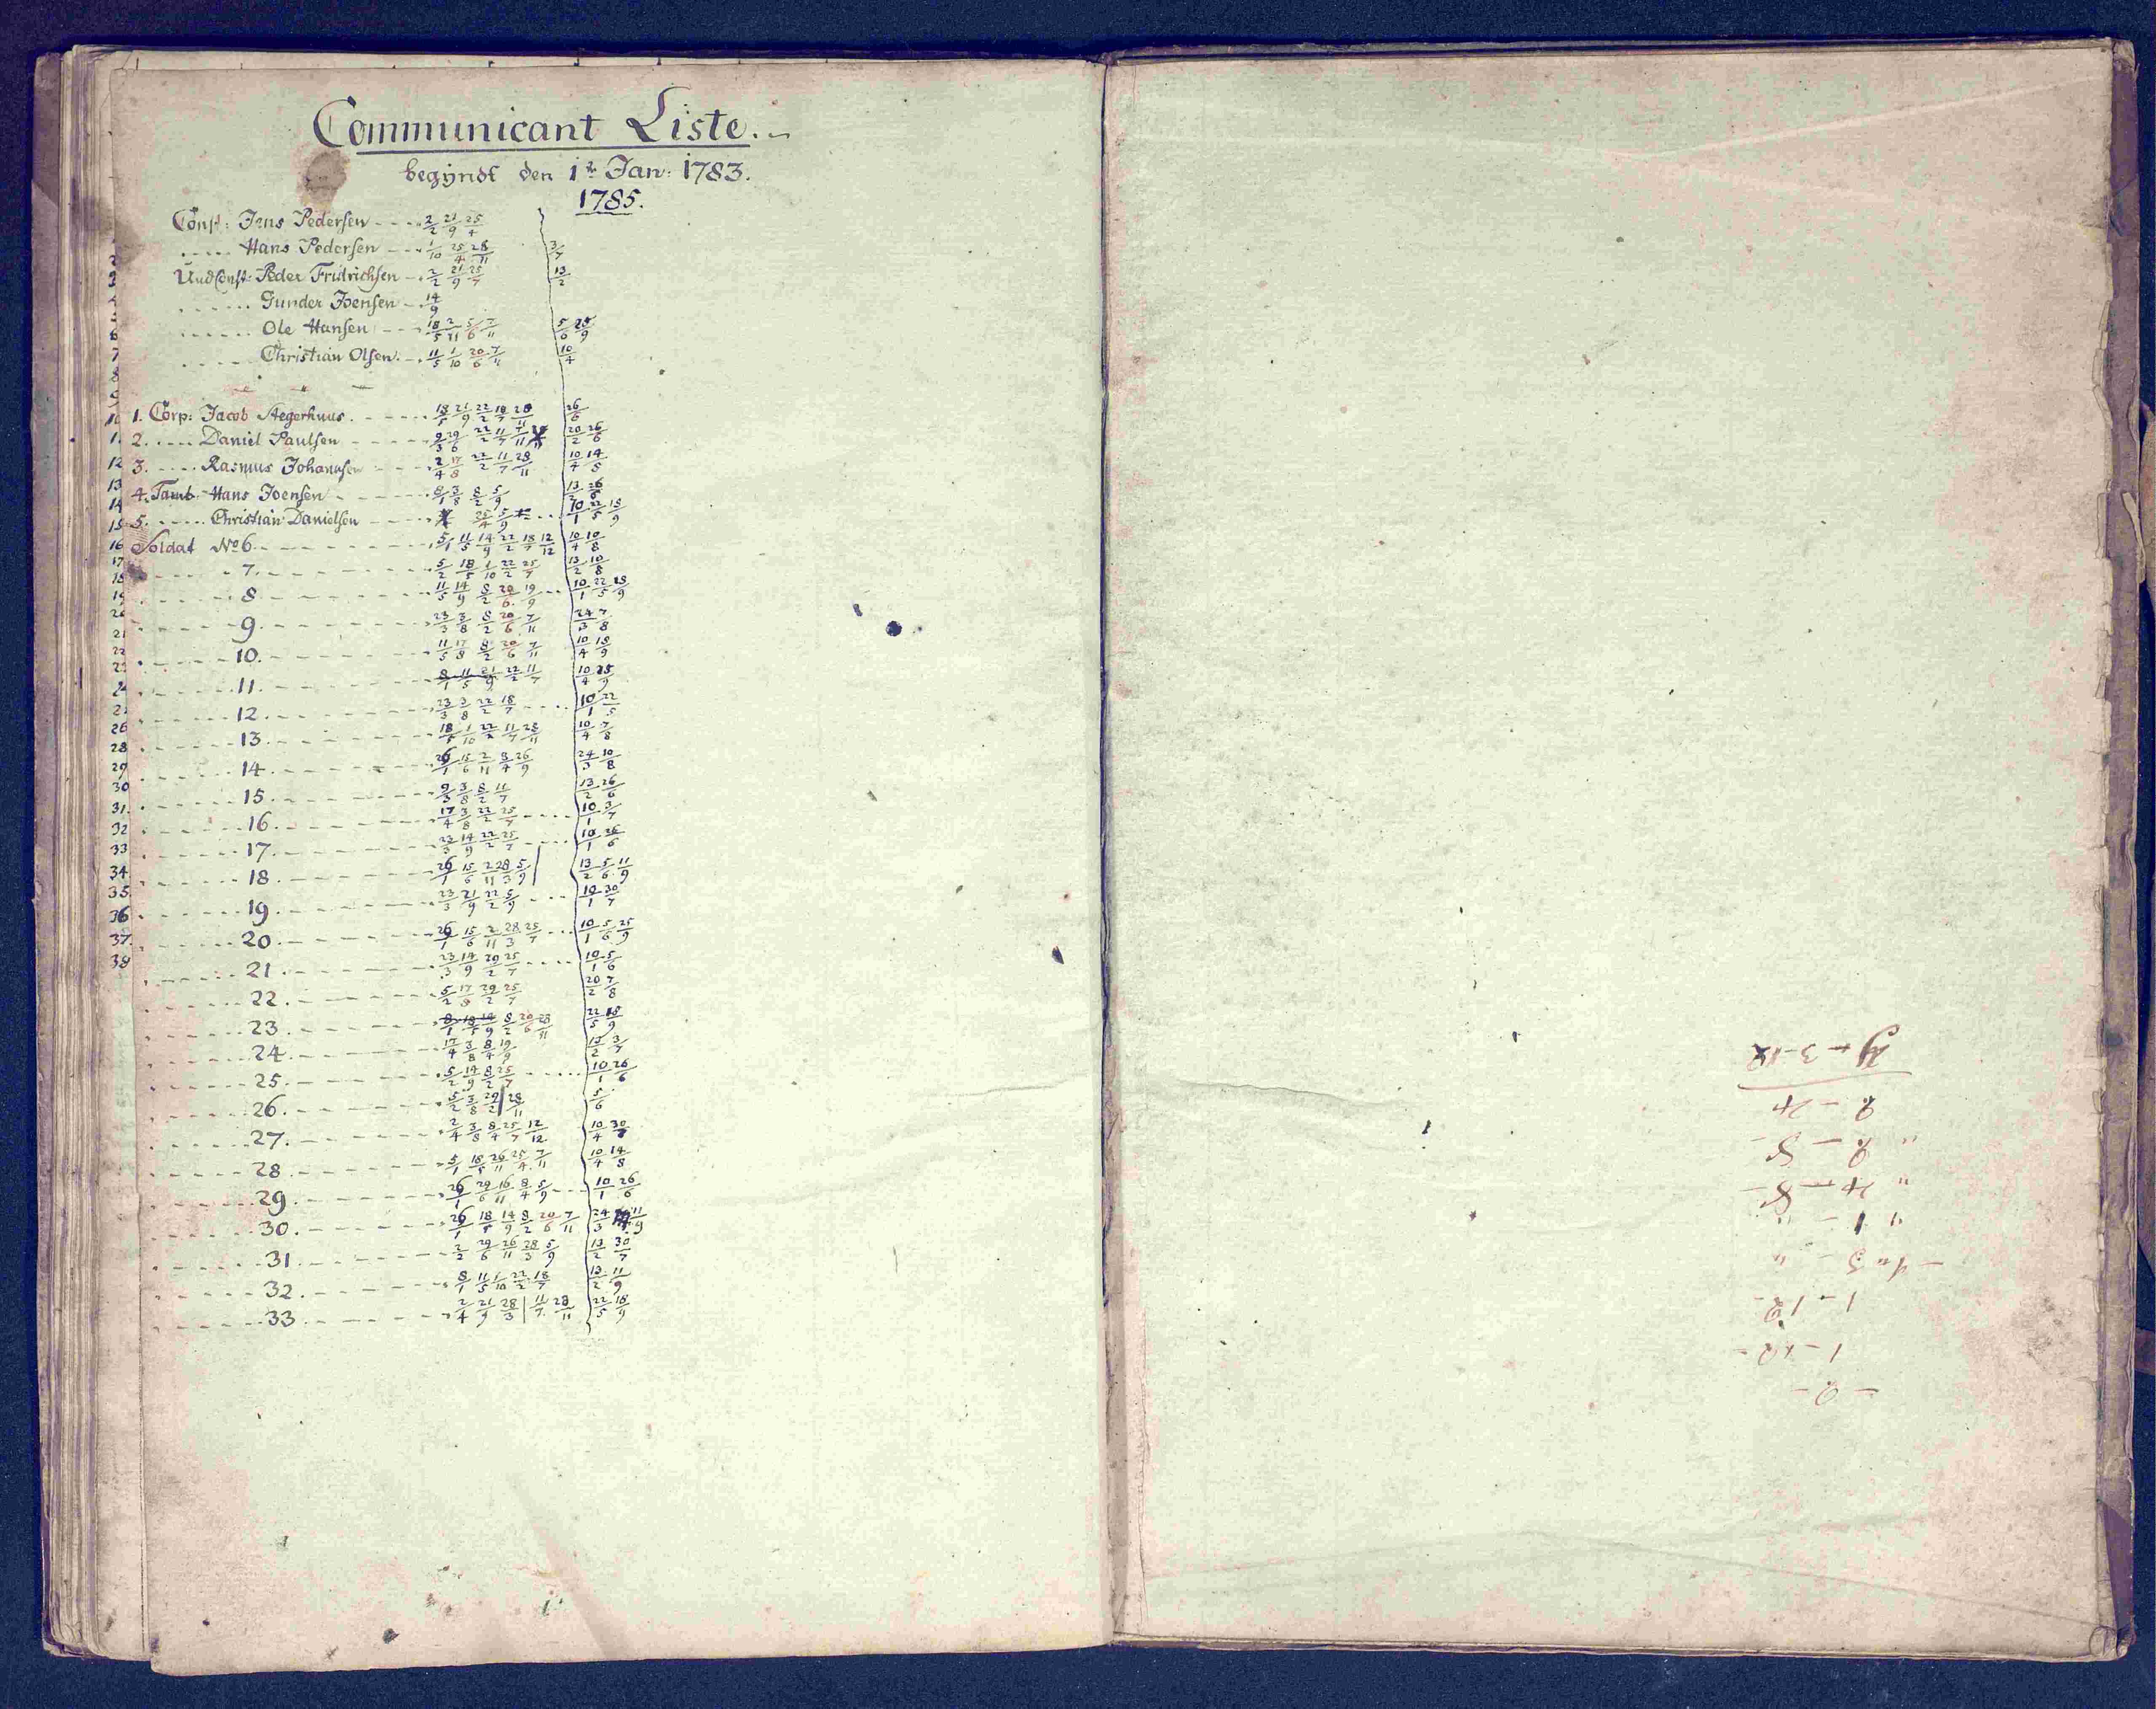 Communicant Liste.
begÿndt den 1te Jan: 1783.
1785.
Const: Jens Pedersen - - - 2/2 21/9 25/4
..... Hans Pedersen - - - 1/10 25/4 28/11 3/7
UndConst: Peder Fridrichsen - 2/2 21/9 25/7 13/2
...... Gunder Joensen - 14/9
...... Ole Hansen - - 18/5 2/11 5/6 7/11 5/6 25/9
...... Christian Olsen. - 11/5 1/10 20/6 7/11 10/4
1. Corp: Jacob Stegerhuus. - - - 18/5 21/9 22/2 18/7 28/11 26/6
2. .... Daniel Paulsen - - - 9/3 29/6 22/2 11/7 7/11 20/2 26/6
3. .... Rasmus Johannsen - - - 2/4 17/8 22/2 11/7 28/11 10/4 14/8
4. Tamb. Hans Joensen - - - 8/1 3/8 8/2 5/9 13/2 26/6
5. ..... Christian Danielsen - - - 25/4 5/9 10/1 22/5 18/9
Soldat No 6. - - - 5/1 11/5 14/9 22/2 18/7 12/12 10/4 10/8
7. - - - 5/2 18/5 1/10 22/2 25/7 13/2 10/8
8. - - - 11/5 14/9 8/2 20/6 19/9 10/1 22/5 18/9
9. - - - 23/3 3/8 8/2 20/6 7/11 24/3 7/8
10. - - - 11/5 17/8 8/2 20/6 7/11 10/4 18/9
11. - - - 8/1 11/5 21/9 22/2 11/7 10/4 25/9
12. - - - 23/3 3/8 22/2 18/7 10/1 22/5
13. - - - 18/5 1/10 22/2 11/7 28/11 10/4 7/8
14. - - - 26/1 15/6 2/11 8/4 26/9 24/3 10/8
15. - - - 9/3 3/8 8/2 11/7 13/2 26/6
16. - - - 17/4 3/8 22/2 25/7 10/1 3/7
17. - - - 23/3 14/9 22/2 25/7 10/1 26/6
18. - - - 26/1 15/6 2/11 28/3 5/9 13/2 5/6 11/9
19. - - - 23/3 21/9 22/2 5/9 10/1 30/7
20. - - - 26/1 15/6 2/11 28/3 25/7 10/1 5/6 25/9
21. - - - 23/3 14/9 29/2 25/7 10/1 5/6
22. - - - 5/2 17/8 29/2 25/7 20/2 7/8
23. - - - 8/1 18/5 14/9 8/2 20/6 28/11 22/5 18/9
24. - - - 17/4 3/8 8/4 19/9 13/2 3/7
25. - - - 5/2 14/9 8/2 25/7 10/1 26/6
26. - - - 5/2 3/8 29/2 28/11 5/6
27. - - - 2/4 3/8 8/4 25/7 12/12 10/4 30/7
28. - - - 5/1 18/5 26/11 25/4 7/11 10/4 14/8
29. - - - 26/1 29/6 16/11 8/4 5/9 10/1 26/6
30. - - - 26/1 18/5 14/9 8/2 20/6 7/11 24/3 11/9
31. - - - 2/2 29/6 26/11 28/3 5/9 13/2 30/7
32. - - - 8/1 11/5 1/10 22/2 18/7 13/2 11/9
33. - - - 2/4 21/9 28/3 11/7 28/11 22/5 18/9
12
13
14
15
16
17
18
19
20
21
22
26
28
29
30
31.
32
33
34.
35.
36
37.
38
- 2 -
1 - 12 -
1 - 12 -
" 1 - "
" 4 - 8 -
" 2 - 8 -
2 - 4